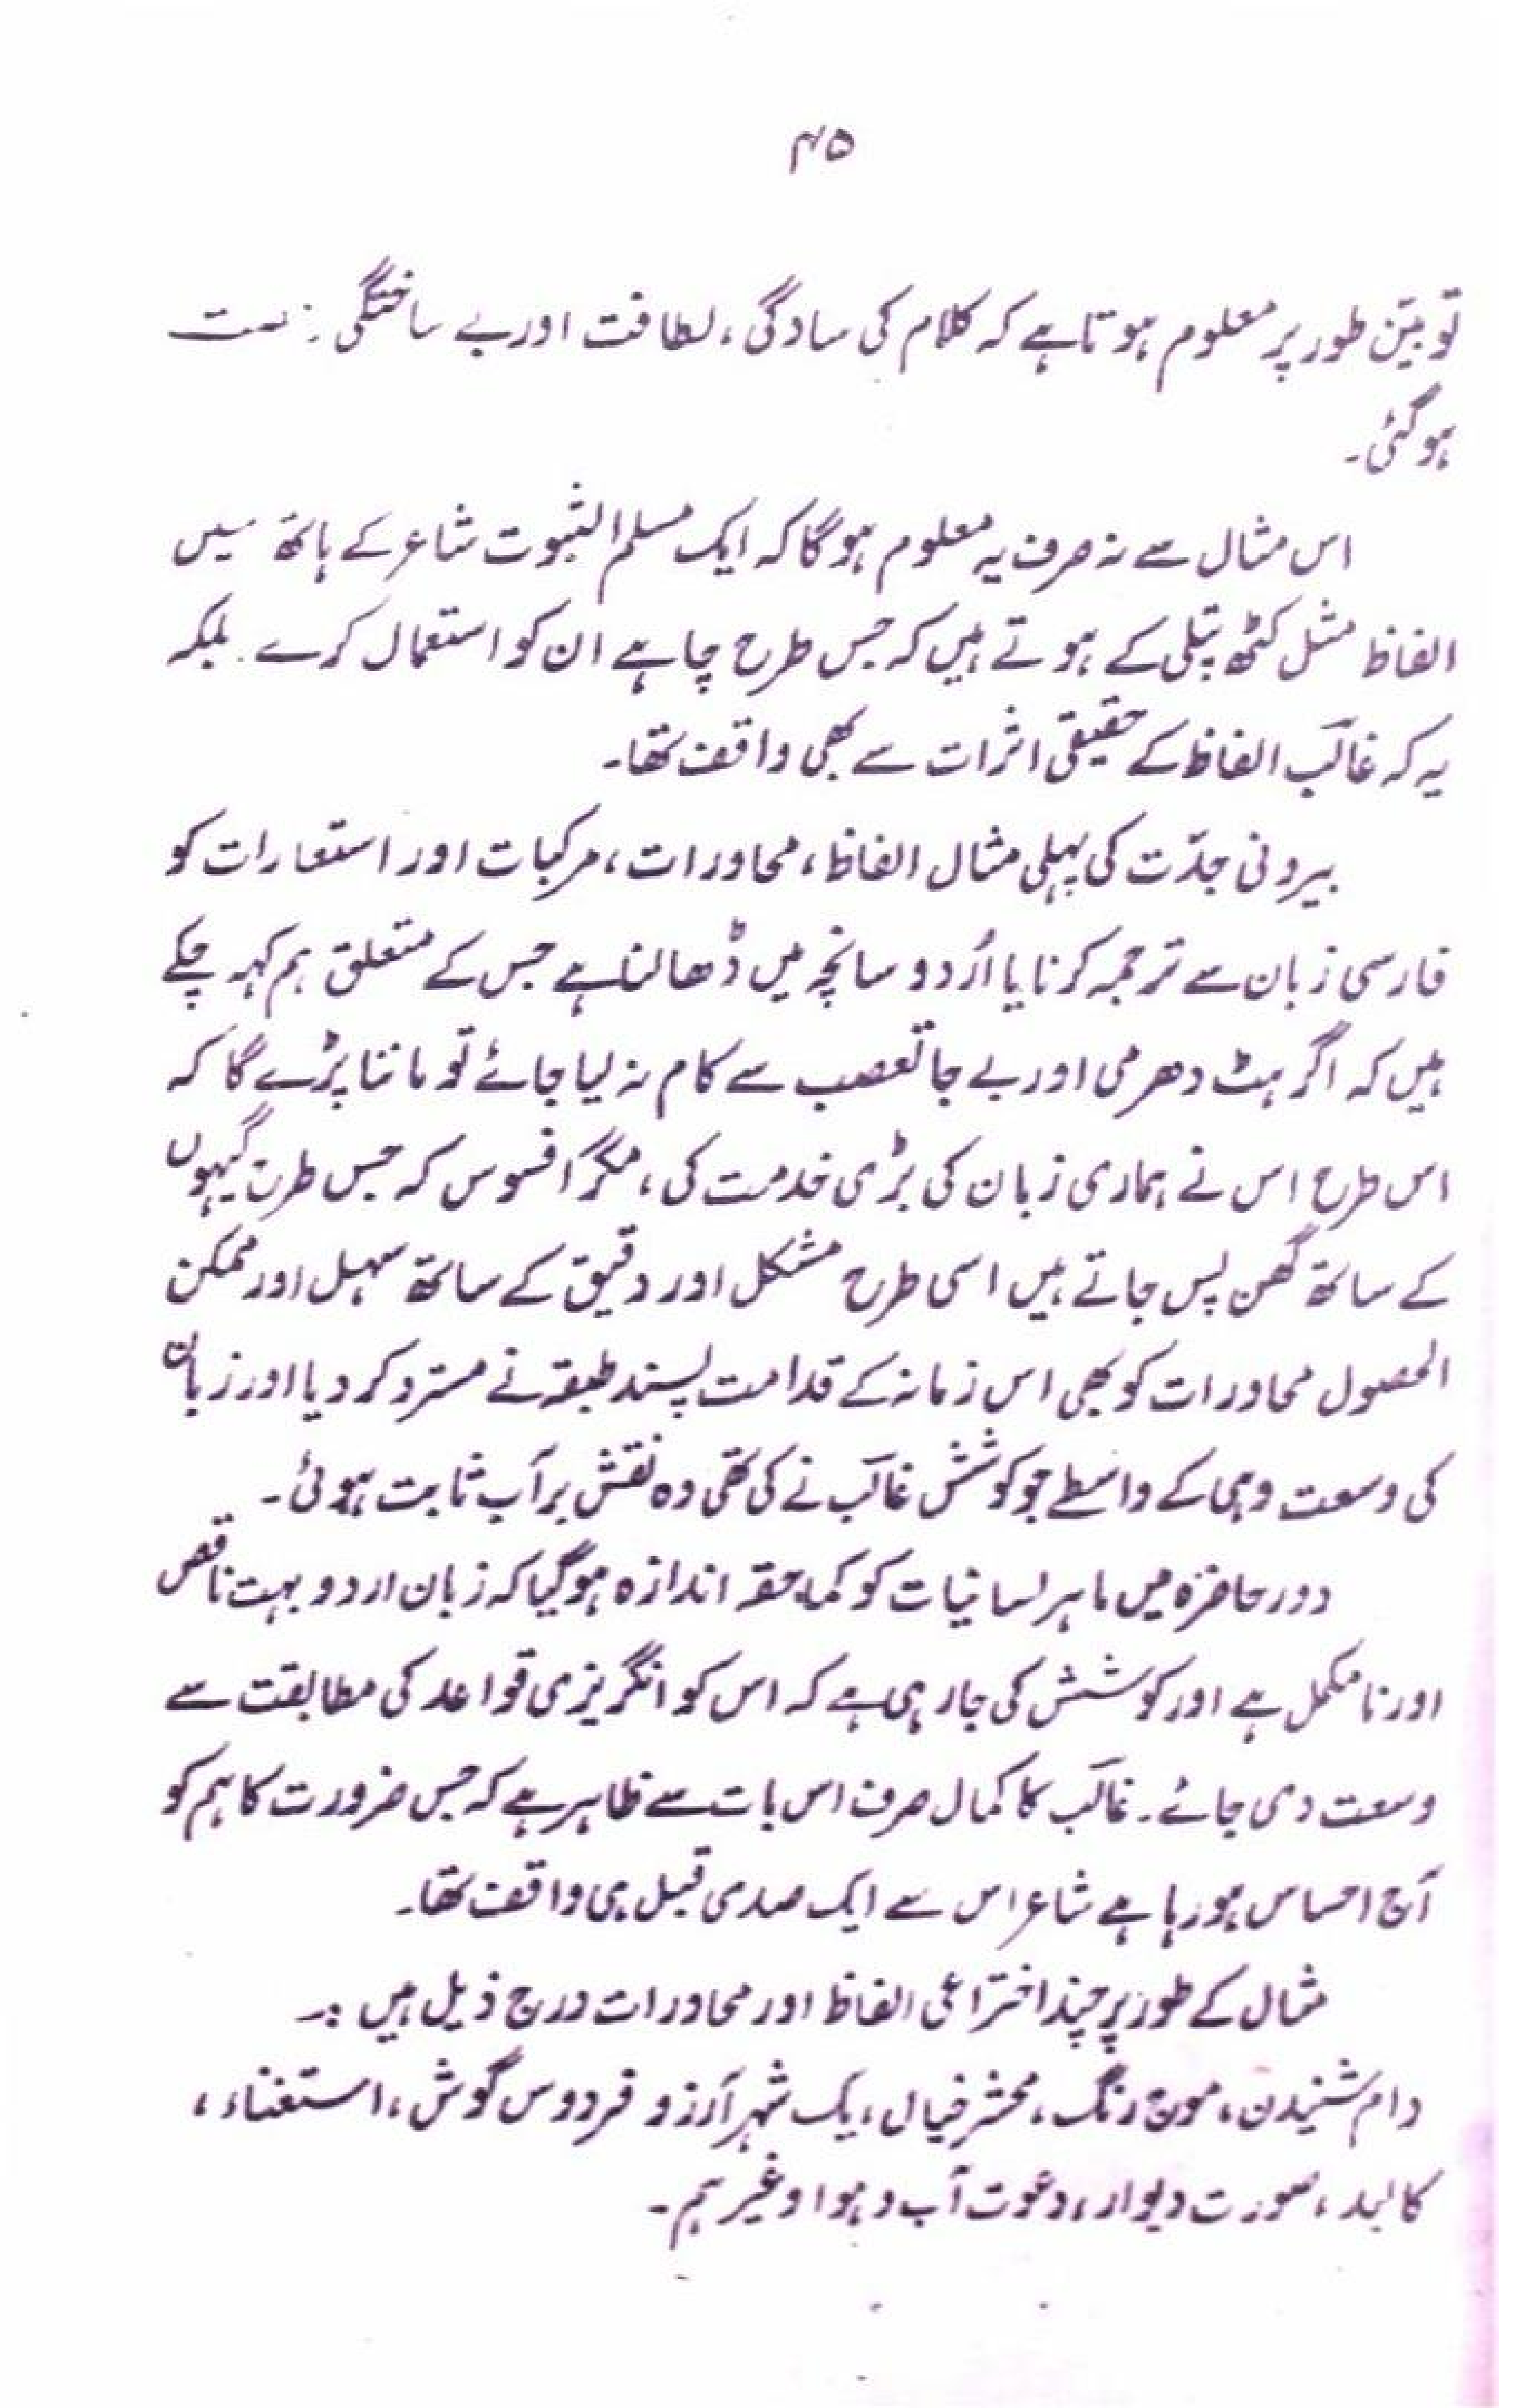 ۴۵
تو بیّن طور پر معلوم ہوتا ہے کہ کلام کی سادگی، لطافت اور بے ساختگی
ہوگئی۔
اس مثال سے نہ صرف یہ معلوم ہوگا کہ ایک مسلم الثبوت شاعر کے ہاتھ میں
الفاظ مثل کٹھ پتلی کے ہوتے ہیں کہ جس طرح چاہے ان کو استعمال کرے۔ بلکہ
یہ کہ غالب الفاظ کے حقیقی اثرات سے بھی واقف تھا۔
بیرونی جدّت کی پہلی مثال الفاظ، محاورات، مرکبات اور استعارات کو
فارسی زبان سے ترجمہ کرنا یا اُردو سانچہ میں ڈھالنا ہے جس کے متعلق ہم کہہ چکے
ہیں کہ اگر ہٹ دھرمی اور بے جا تعصب سے کام نہ لیا جائے تو ماننا پڑے گا کہ
اس طرح اس نے ہماری زبان کی بڑی خدمت کی، مگر افسوس کہ جس طرح گیہوں
کے ساتھ گھن پس جاتے ہیں اسی طرح مشکل اور دقیق کے ساتھ سہل اور ممکن
الحصول محاورات کو بھی اس زمانہ کے قدامت پسند طبقہ نے مسترد کر دیا اور زبان
کی وسعت دہی کے واسطے جو کوشش غالب نے کی تھی وہ نقش بر آب ثابت ہوئی۔
دور حاضرہ میں ماہر لسانیات کو کماحقہ اندازہ ہوگیا کہ زبان اردو بہت ناقص
اور نامکمل ہے اور کوشش کی جارہی ہے کہ اس کو انگریزی قواعد کی مطابقت سے
وسعت دی جائے۔ غالب کا کمال صرف اس بات سے ظاہر ہے کہ جس ضرورت کا ہم کو
آج احساس ہورہا ہے شاعر اس سے ایک صدی قبل ہی واقف تھا۔
مثال کے طور پر چند اختراعی الفاظ اور محاورات درج ذیل ہیں :۔
دام شنیدن، موج رنگ، محشر خیال، یک شہر آرزو فردوس گوش، استغناء،
کالبد، صورت دیوار، دعوت آب و ہوا وغیرہم۔